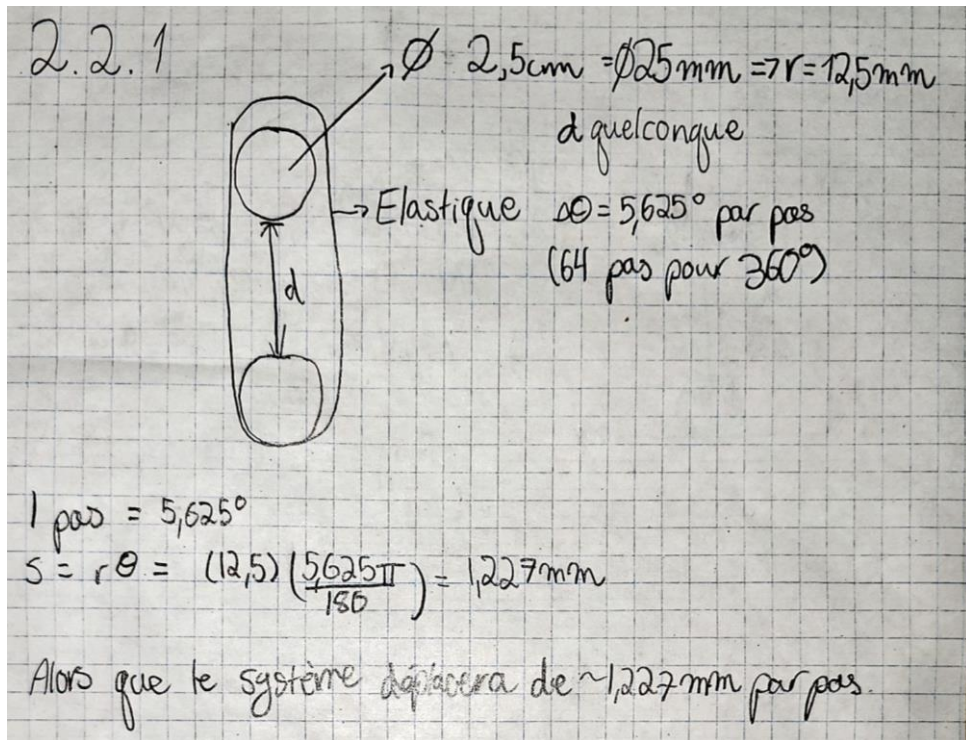 2.2.1
Ø 2,5cm = Ø25mm => r = 12,5mm
d quelconque
→ Elastique Δθ = 5,625° par pas
(64 pas pour 360°)
d
1 pas = 5,625°
s = rθ = (12,5) (5,625π/180) = 1,227mm
Alors que le système déplacera de ~1,227mm par pas.